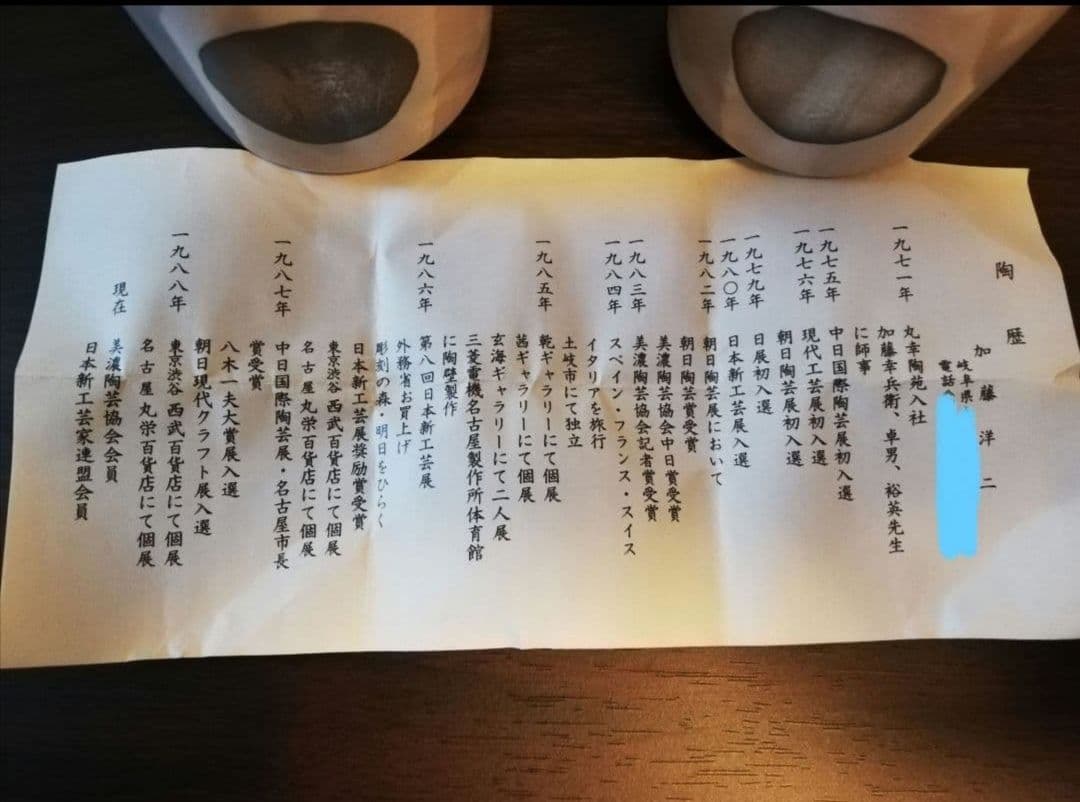 陶歴
加藤洋二
岐阜県
電話
一九七一年 丸幸陶苑入社
加藤幸兵衛、卓男、裕英先生
に師事
一九七五年 中日国際陶芸展初入選
一九七六年 現代工芸展初入選
朝日陶芸展初入選
一九七九年 日展初入選
一九八〇年 日本新工芸展入選
一九八二年 朝日陶芸展において
朝日陶芸賞受賞
美濃陶芸協会中日賞受賞
一九八三年 美濃陶芸協会記者賞受賞
一九八四年 スペイン・フランス・スイス
イタリアを旅行
土岐市にて独立
一九八五年 乾ギャラリーにて個展
茜ギャラリーにて個展
玄海ギャラリーにて二人展
三菱電機名古屋製作所体育館
に陶壁製作
一九八六年 第八回日本新工芸展
外務省お買上げ
彫刻の森・明日をひらく
日本新工芸展奨励賞受賞
東京渋谷西武百貨店にて個展
名古屋丸栄百貨店にて個展
一九八七年 中日国際陶芸展・名古屋市長
賞受賞
八木一夫大賞展入選
朝日現代クラフト展入選
一九八八年 東京渋谷西武百貨店にて個展
名古屋丸栄百貨店にて個展
現在 美濃陶芸協会会員
日本新工芸家連盟会員